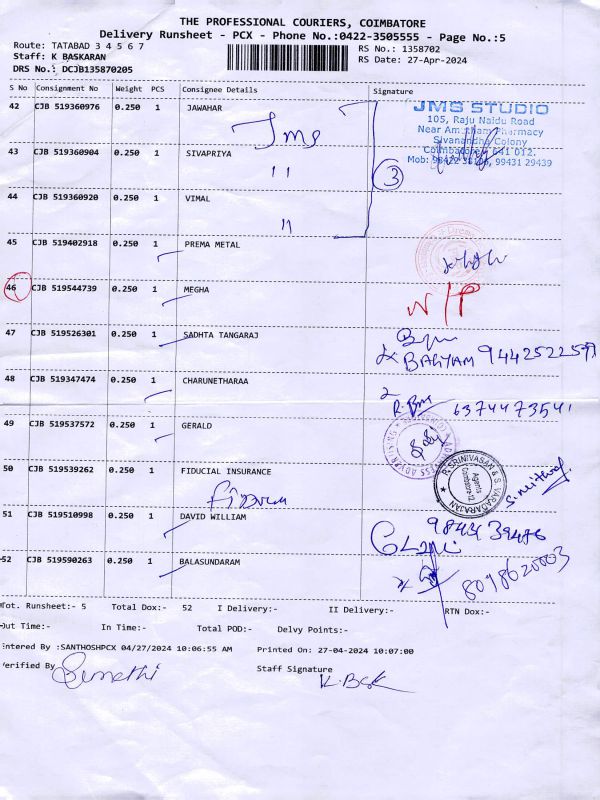 THE PROFESSIONAL COURIERS, COIMBATORE
Delivery Runsheet - PCX - Phone No.:0422-3505555 - Page No.:5
Route: TATABAD 3 4 5 6 7
RS No.: 1358702
Staff: K BASKARAN
RS Date: 27-Apr-2024
DRS No.: DCJB135870205
S No Consignment No Weight PCS Consignee Details Signature
42 CJB 519360976 0.250 1 JAWAHAR
Jms
JMS STUDIO
105, Raju Naidu Road
Near Amirtham Pharmacy
Sivanandha Colony
Coimbatore - 641 012.
Mob: 99431 29439
43 CJB 519360904 0.250 1 SIVAPRIYA
11
3
44 CJB 519360920 0.250 1 VIMAL
11
45 CJB 519402918 0.250 1 PREMA METAL
46 CJB 519544739 0.250 1 MEGHA
N/P
47 CJB 519526301 0.250 1 SADHTA TANGARAJ
BAGYAM
48 CJB 519347474 0.250 1 CHARUNETHARAA
6374473541
49 CJB 519537572 0.250 1 GERALD
50 CJB 519539262 0.250 1 FIDUCIAL INSURANCE
R. SRINIVASAN & S. VARADARAJAN
Agents
Coimbatore-12
51 CJB 519510998 0.250 1 DAVID WILLIAM
52 CJB 519590263 0.250 1 BALASUNDARAM
8098620003
Tot. Runsheet:- 5 Total Dox:- 52 I Delivery:- II Delivery:- RTN Dox:-
Out Time:- In Time:- Total POD:- Delvy Points:-
Entered By :SANTHOSHPCX 04/27/2024 10:06:55 AM Printed On: 27-04-2024 10:07:00
Verified By
Staff Signature
K.BSK